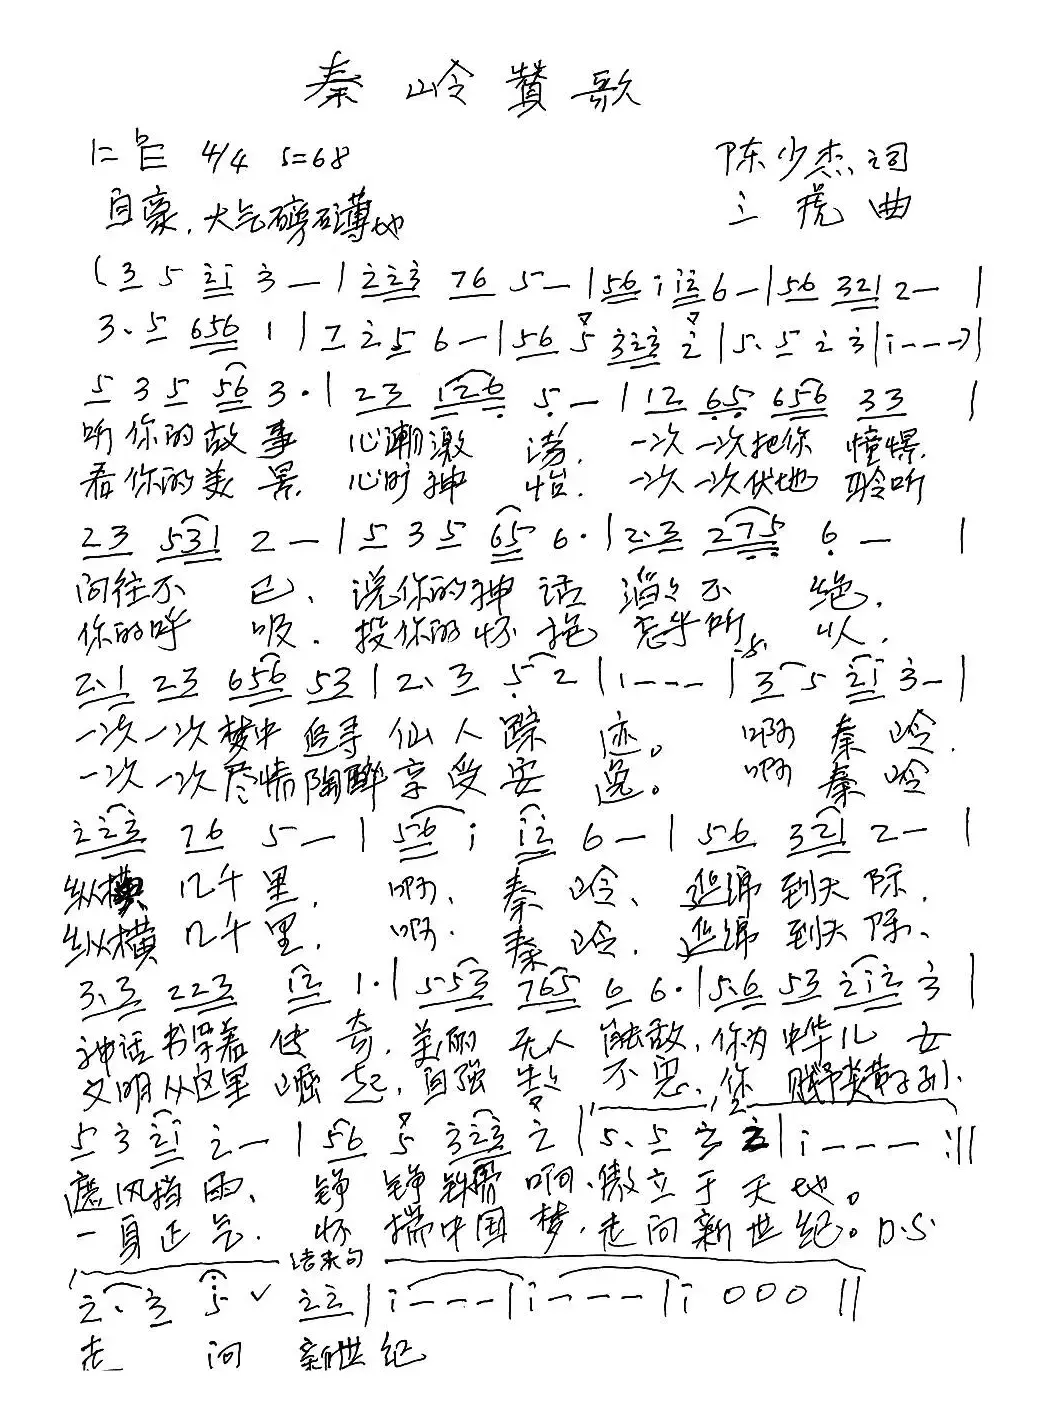 秦岭赞歌
1=ᵇE 4/4 5=68
陈少杰词
自豪.大气磅礴地
三虎曲
(3 5 2i 3 — | 223 76 5 — | 56 i i2 6 — | 56 321 2 — |
3. 5 656 1 1 | 7 2 5 6 — | 56 5 323 2 | 5. 5 2 3 | i — — —) |
5 3 5 56 3 · | 23 126 5 — | 12 65 656 33 |
听你的故事 心潮激荡. 一次一次把你憧憬.
看你的美景. 心旷神怡. 一次一次伏地聆听
23 531 2 — | 5 3 5 65 6 · | 2.3 275 6 — |
向往不已、说你的神话滔々不绝.
你的呼吸.投你的怀抱怎乎所以.
2.1 23 656 53 | 2. 3 5 2 | 1 — — — | 𝄋 3 5 2i 3 — |
一次一次梦中追寻仙人踪迹。 啊秦岭.
一次一次尽情陶醉享受安逸。 啊秦岭
223 76 5 — | 56 i i2 6 — | 56 321 2 — |
纵横几千里. 啊、秦岭、延绵到天际.
纵横几千里. 啊. 秦岭.延绵到天际、
3.3 223 i2 1 · | 553 765 6 6 · | 5.6 53 2i2 3 |
神话书写着传奇.美丽无人能敌,你为中华儿女
文明从这里崛起,自强生生不息.你赋予炎黄子孙.
1. 2.
5 3 2i 2 — | 56 5 323 2 | 5. 5 3 2 | i — — — :||
遮风挡雨、铮铮铁骨啊、傲立于天地。
一身正气.怀揣中国梦.走向新世纪。D.S.
结束句
2. 3 5 ∨ 22 | i — — — | i — — — | i 0 0 0 ||
走向新世纪